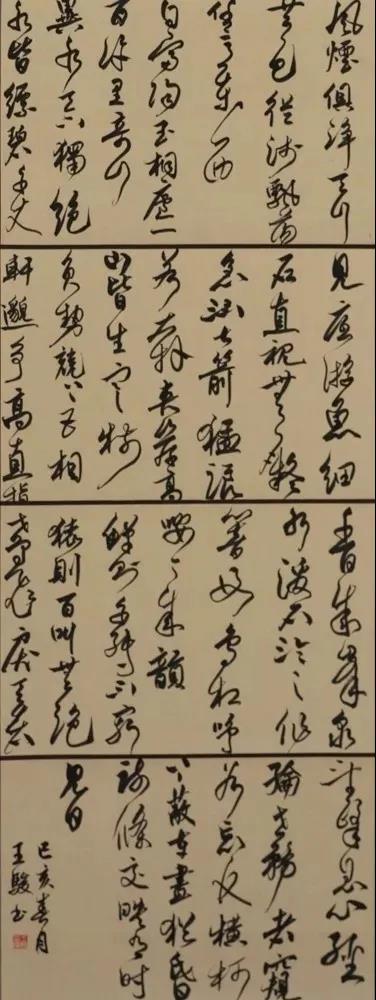 風煙俱淨天山
共色從流飄蕩
任意東西
自富陽至桐廬一
百許里奇山
異水天下獨絕
水皆縹碧千丈
見底游魚細
石直視無礙
急湍甚箭猛浪
若奔夾岸高
山皆生寒樹
負勢競上互相
軒邈爭高直指
千百成峯泉
水激石泠泠作
響好鳥相鳴
嚶嚶成韻
蟬則千轉不窮
猿則百叫無絕
鳶飛戾天者
望峰息心經
綸世務者窺
谷忘反橫柯
上蔽在晝猶昏
疏條交映有時
見日
己亥春月
王駿書